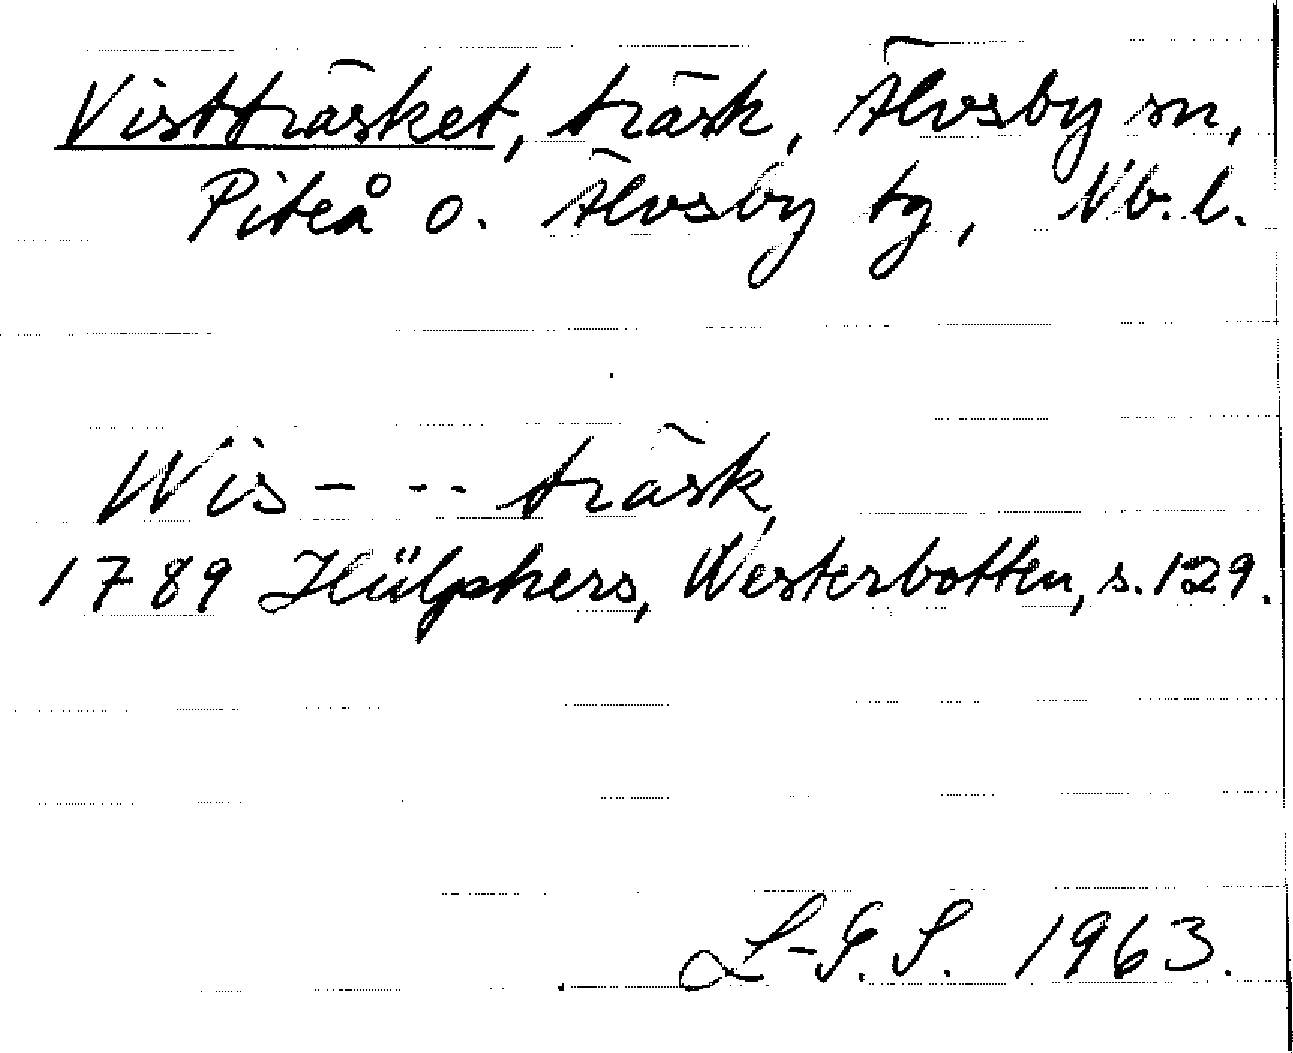 Vistträsket, träsk, Älvsby sn,
Piteå o. Älvsby tg, Nb. l.
Wis- -- träsk,
1789 Hülphers, Westerbotten, s. 129.
L-G. S. 1963.